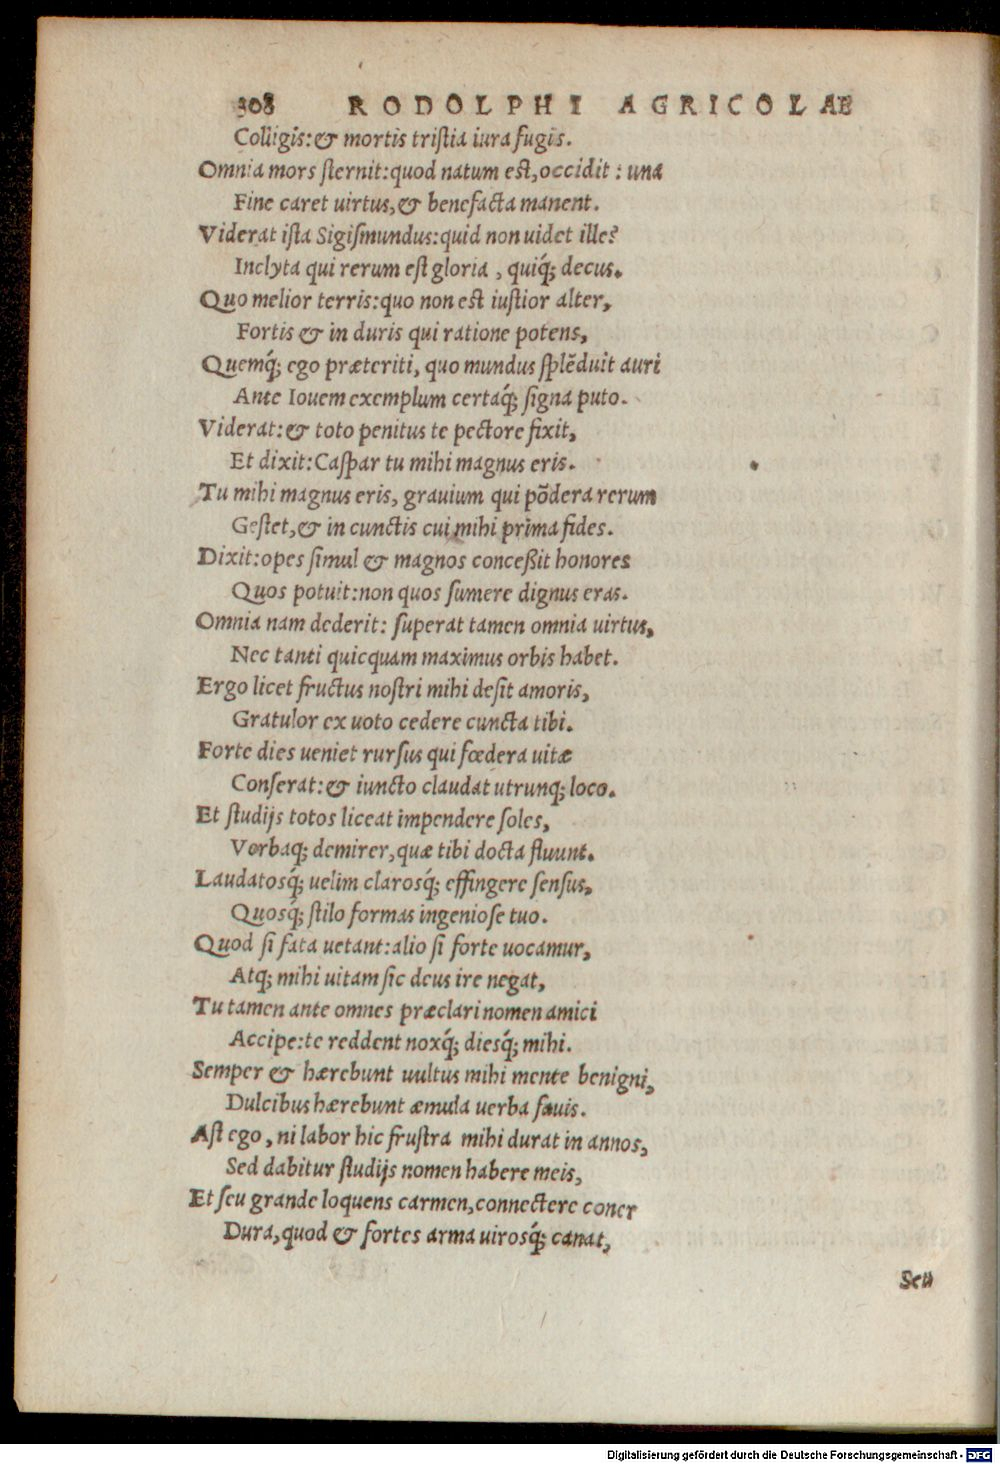 308 RODOLPHI AGRICOLAE
Colligis:& mortis tristia iura fugis.
Omnia mors sternit:quod natum est,occidit : una
Fine caret uirtus,& benefacta manent.
Viderat ista Sigismundus:quid non uidet ille?
Inclyta qui rerum est gloria , quiq́; decus.
Quo melior terris:quo non est iustior alter,
Fortis & in duris qui ratione potens,
Quemq́; ego præteriti, quo mundus splẽduit auri
Ante Iouem exemplum certaq́; signa puto.
Viderat:& toto penitus te pectore fixit,
Et dixit:Caspar tu mihi magnus eris.
Tu mihi magnus eris, grauium qui põdera rerum
Gestet,& in cunctis cui mihi prima fides.
Dixit:opes simul & magnos conceßit honores
Quos potuit:non quos sumere dignus eras.
Omnia nam dederit: superat tamen omnia uirtus,
Nec tanti quicquam maximus orbis habet.
Ergo licet fructus nostri mihi desit amoris,
Gratulor ex uoto cedere cuncta tibi.
Forte dies ueniet rursus qui fœdera uitæ
Conserat:& iuncto claudat utrunq; loco.
Et studijs totos liceat impendere soles,
Verbaq; demirer,quæ tibi docta fluunt.
Laudatosq́; uelim clarosq́; effingere sensus,
Quosq́; stilo formas ingeniose tuo.
Quod si fata uetant:alio si forte uocamur,
Atq; mihi uitam sic deus ire negat,
Tu tamen ante omnes præclari nomen amici
Accipe:te reddent noxq́; diesq́; mihi.
Semper & hærebunt uultus mihi mente benigni,
Dulcibus hærebunt æmula uerba fauis.
Ast ego , ni labor hic frustra mihi durat in annos,
Sed dabitur studijs nomen habere meis,
Et seu grande loquens carmen,connectere coner
Dura,quod & fortes arma uirosq́; canat,
Seu
Digitalisierung gefördert durch die Deutsche Forschungsgemeinschaft - DFG